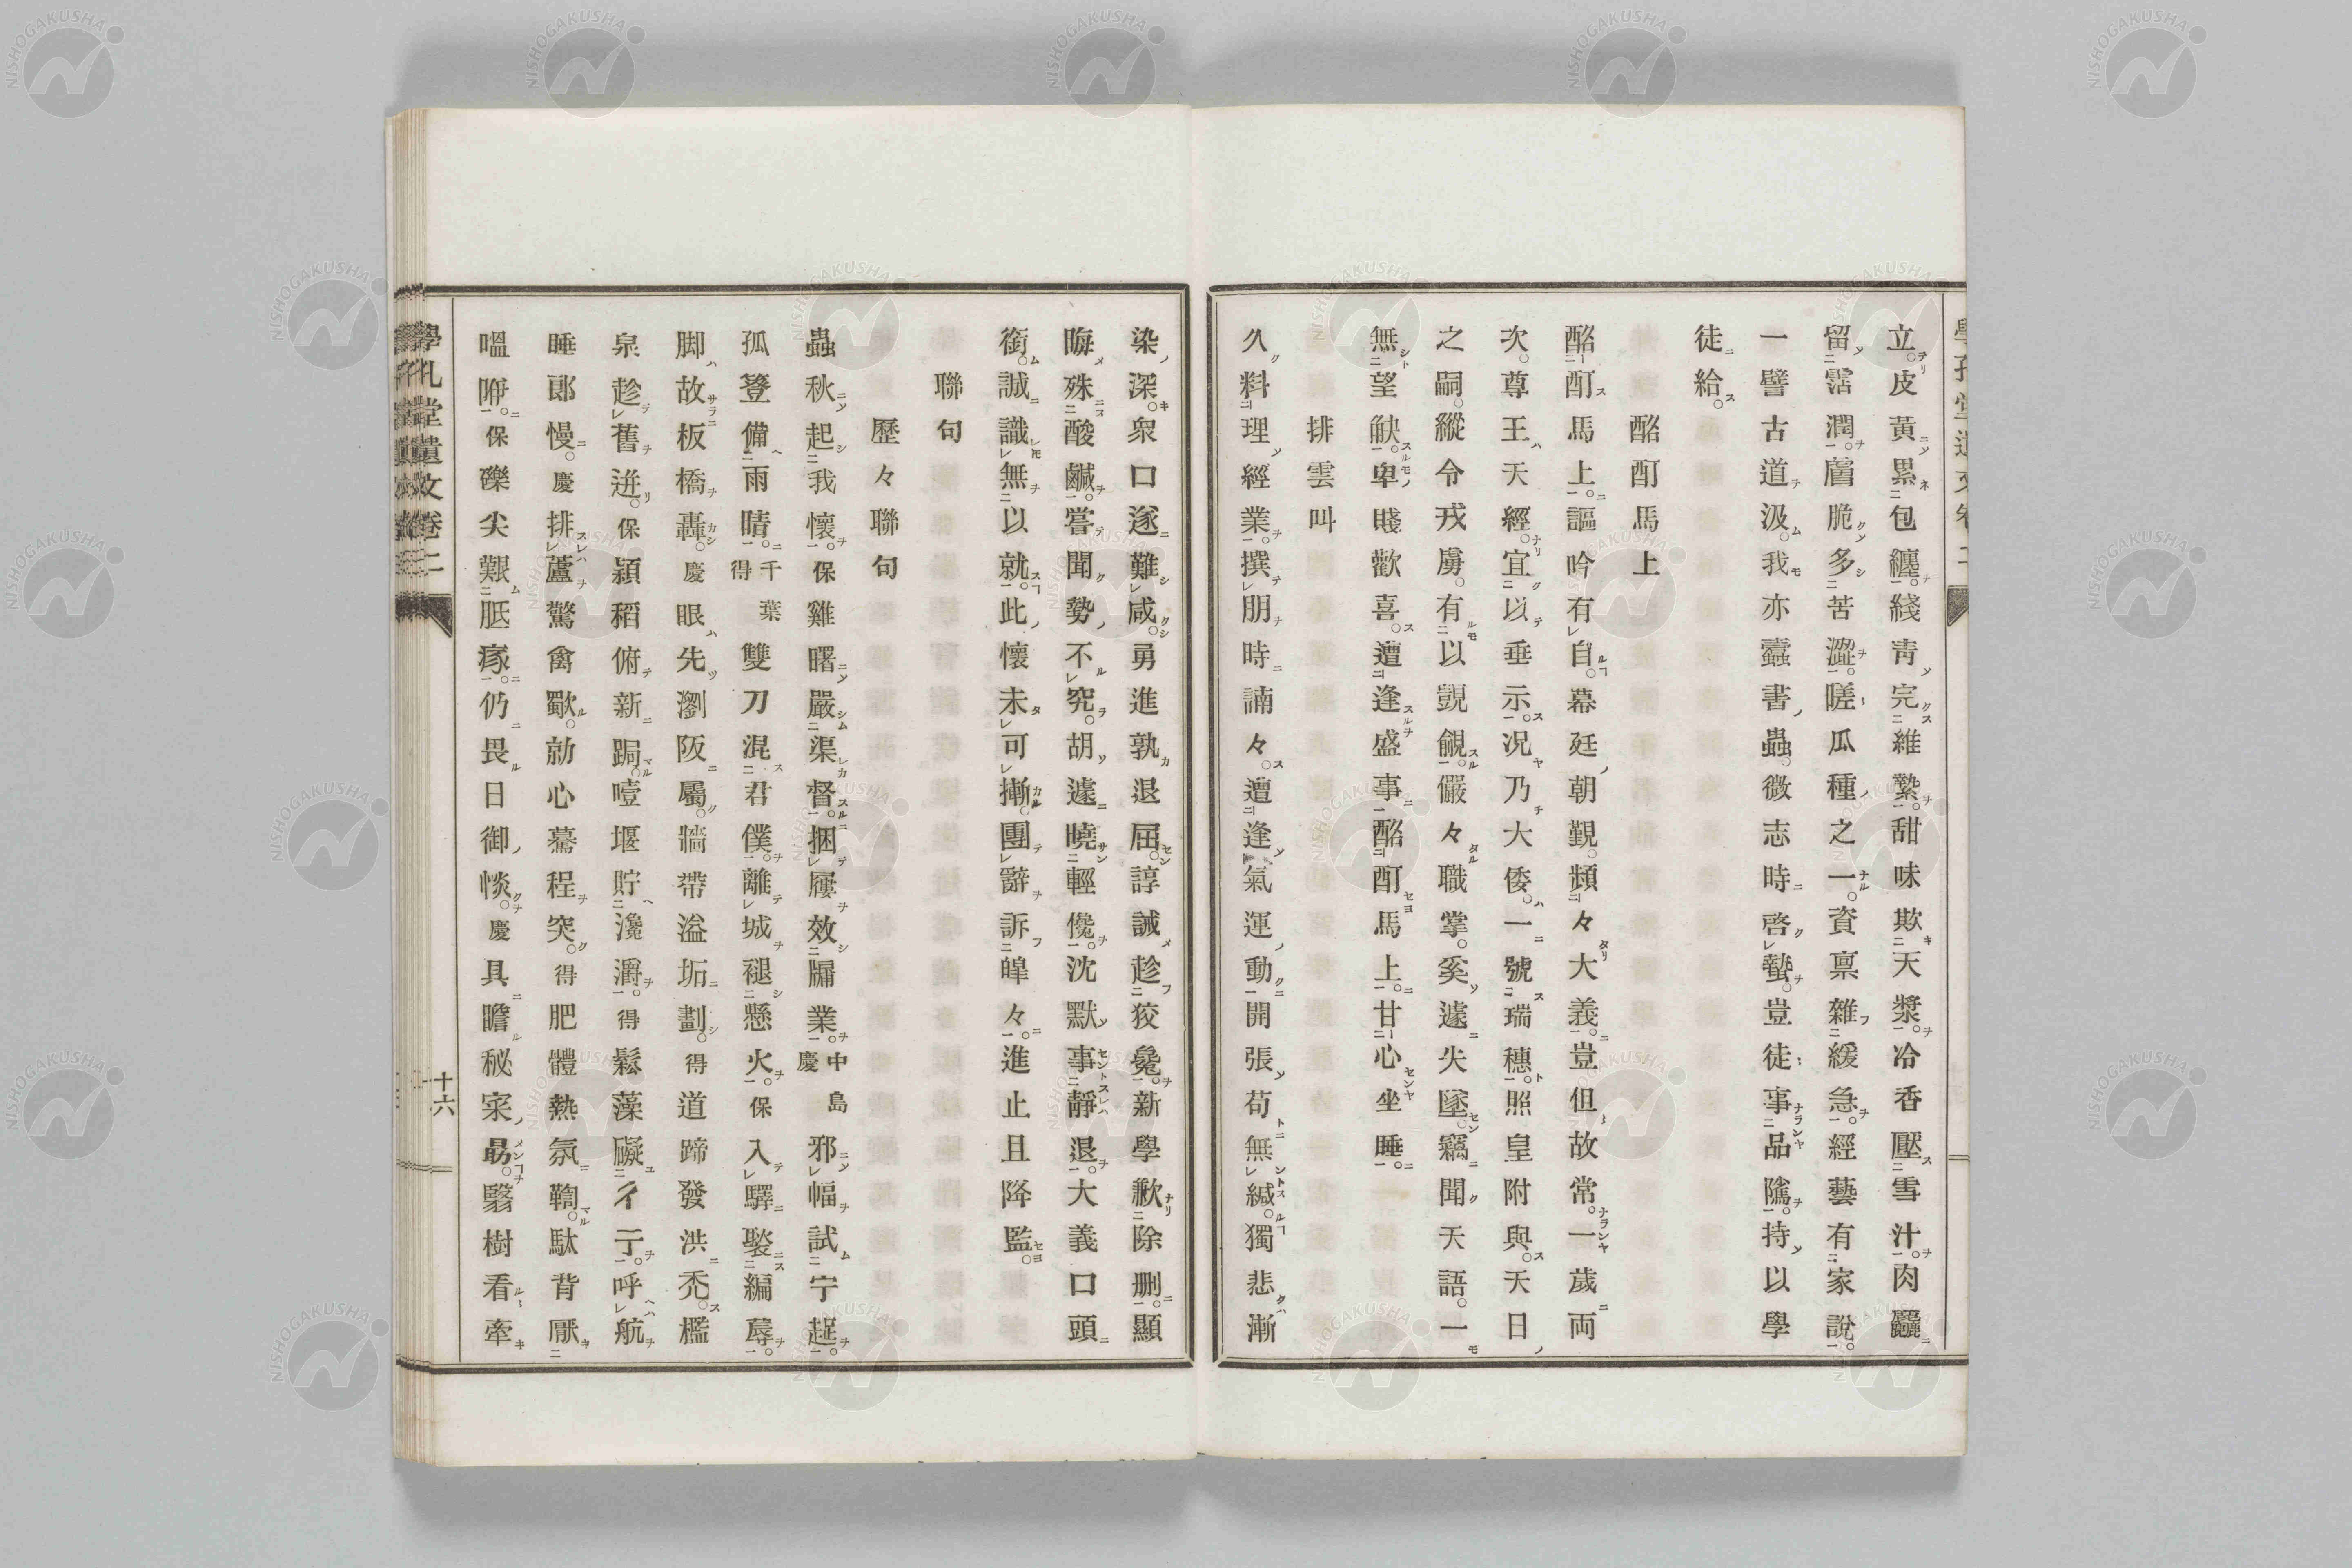 立皮黃累包纏綫靑完維縶甜味欺天漿冷香壓雪汁肉麤
留霑潤膚脆多苦澀嗟瓜種之一資稟雜緩急經藝有家說
一譬古道汲我亦蠹書蟲微志時啓蟄豈徒事品隲持以學
徒給
酩酊馬上
酩酊馬上謳吟有自幕廷朝覲頻々大義豈但故常一歲両
次尊王天經宜以垂示况乃大倭一號瑞穗照皇附與天日
之嗣縱令戎虜有以覬覦儼々職掌奚遽失墜竊聞天語一
無望觖卑賤歡喜遭逢盛事酩酊馬上甘心坐睡
排雲叫
久料理經業撰朋時諵々遭逢氣運動開張苟無緘獨悲漸
染深衆口遂難咸勇進孰退屈諄誡趁狡毚新學歉除刪顯
晦殊酸鹹嘗聞勢不究胡遽曉輕儳沈默事靜退大義口頭
銜誠識無以就此懷未可摲團辭訴皥々進止且降監
聯句
歷々聯句
蟲秋起我懷保雞曙嚴渠督捆屨效牖業中島慶邪幅試宁趍
孤簦備雨晴千葉得雙刀混君僕離城褪懸火保入驛鞶編蓐
脚故板橋轟慶眼先瀏阪屬牆帶溢垢劃得道蹄發洪禿檻
泉趁舊迸保潁稻俯新跼噎堰貯瀺灂得鬆藻礙彳亍呼航
睡郎慢慶排蘆驚禽歇勍心驀程突得肥體熱氛鞫馱背厭
嗢喖保礫尖艱胝瘃仍畏日御惔慶具瞻秘寀勗翳樹看牽
學孔堂遺文卷二
十六